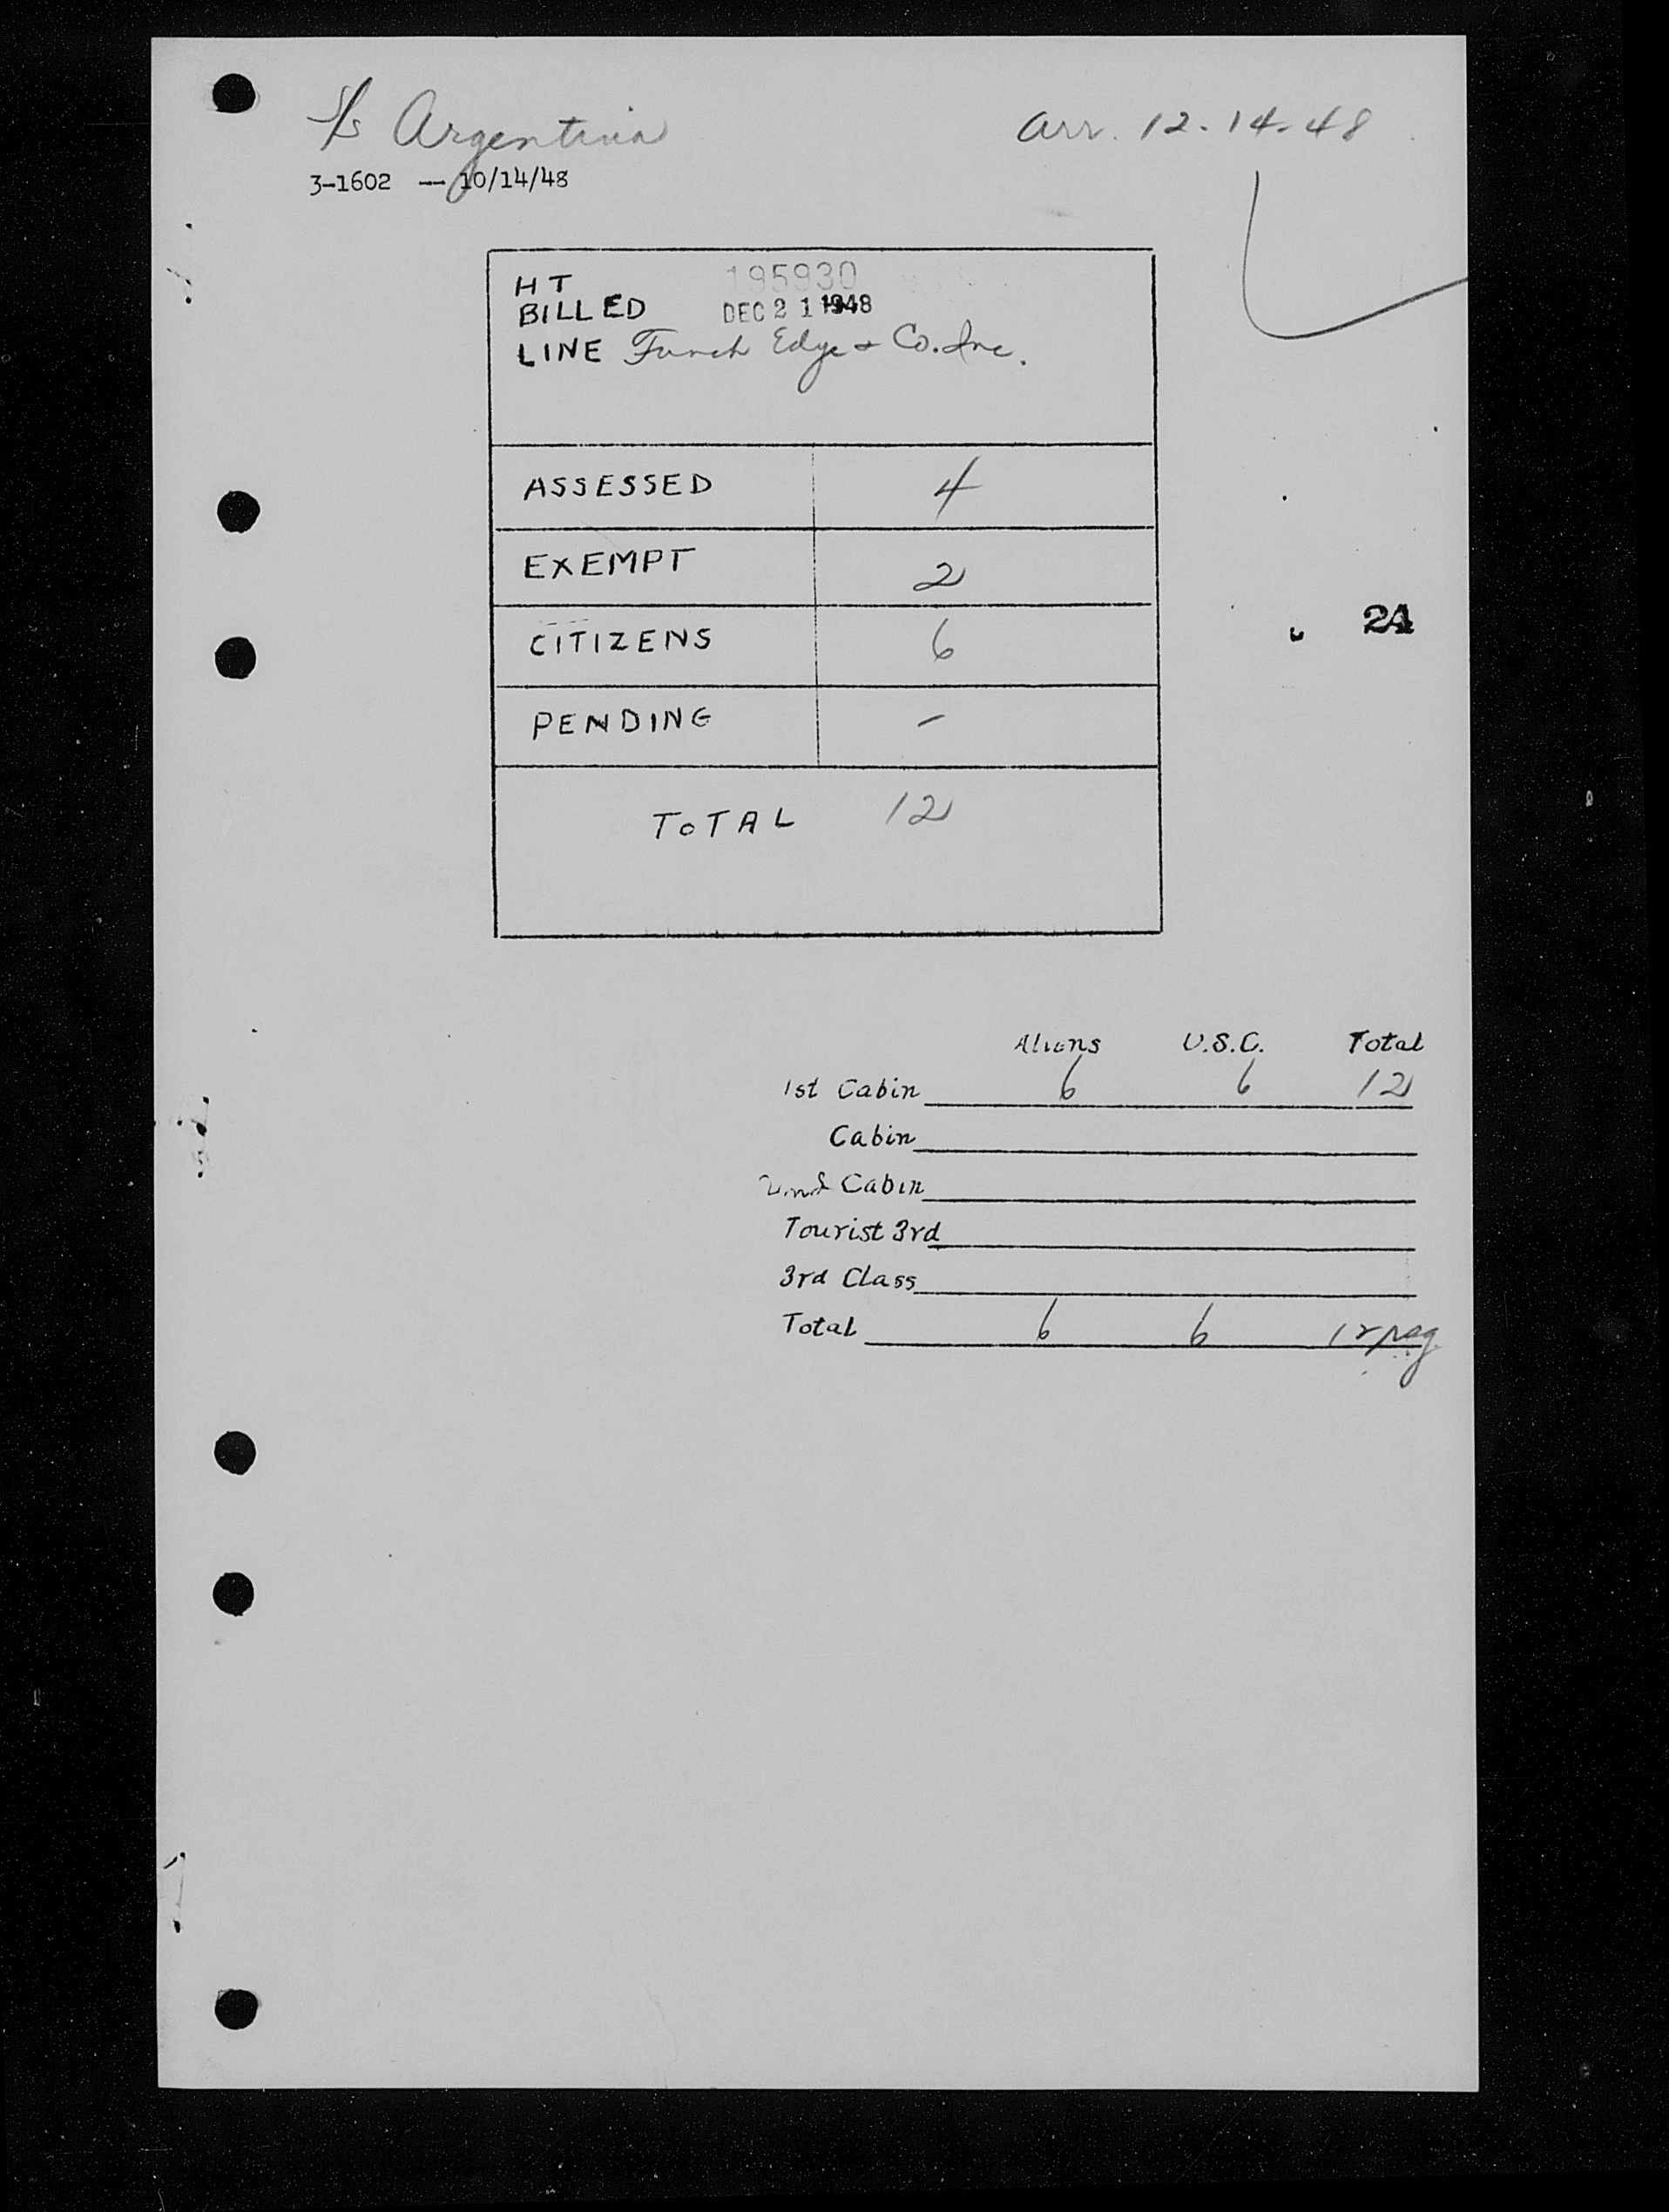 S/s Argentina
arr. 12-14-48
3-1602 — 10/14/48
HT 195930
BILLED DEC 21 1948
LINE Funch Edye & Co. Inc.
ASSESSED 4
EXEMPT 2
CITIZENS 6
PENDING -
24
TOTAL 12
Aliens U.S.C. Total
1st Cabin 6 6 12
Cabin
2nd Cabin
Tourist 3rd
3rd Class
Total 6 6 12